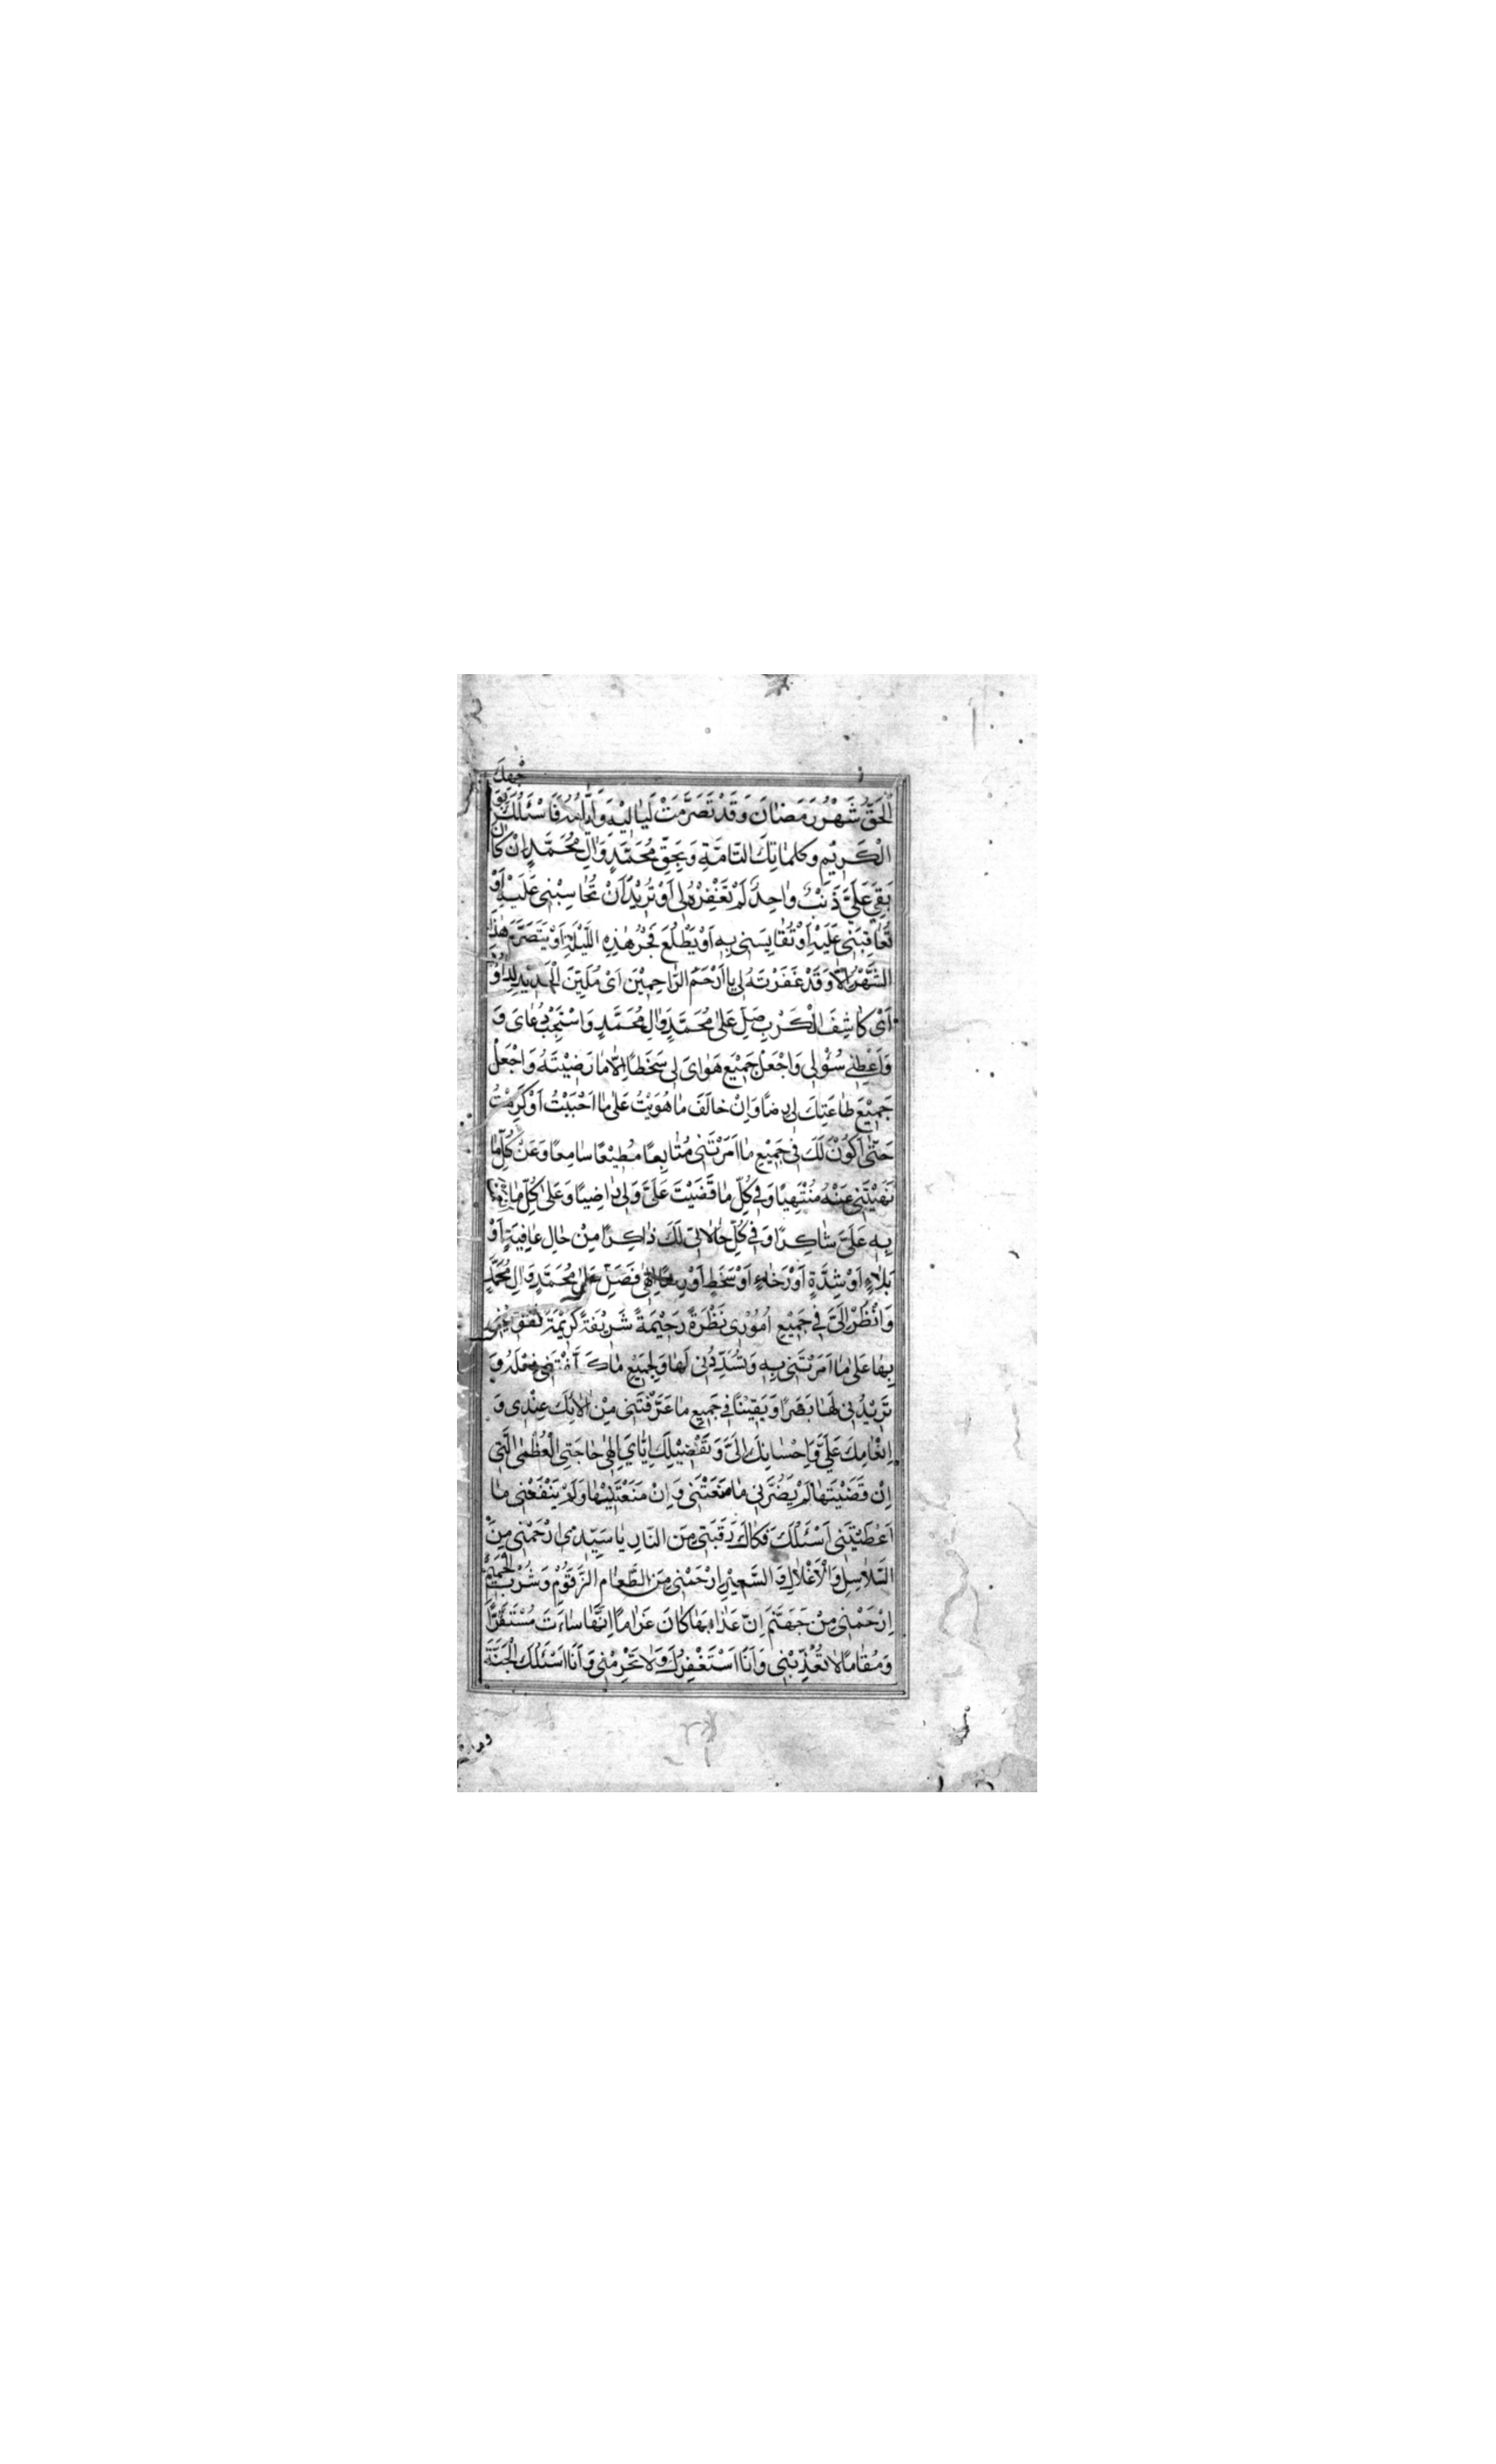 الْحَقُّ شَهْرُ رَمَضانَ وَقَدْ تَصَرَّمَتْ لَيالِيهِ وَاَيّامُهُ فَاَسْئَلُكَ بِوَجْهِكَ
الْكَرِيْمِ وَكَلِماتِكَ التّامَّةِ وَبِحَقِّ مُحَمَّدٍ وَالِ مُحَمَّدٍ اِنْ كانَ
بَقِيَ عَلَيَّ ذَنْبٌ واحِدٌ لَمْ تَغْفِرْهُ لِى اَوْ تُرِيْدُ اَنْ تُحاسِبَنِى عَلَيْهِ اَوْ
تُعاقِبَنِى عَلَيْهِ اَوْ تُقايِسَنِى بِهِ اَوْ يَطْلُعَ فَجْرُ هٰذِهِ اللَّيْلَةِ اَوْ يَتَصَرَّمَ هٰذَا
الشَّهْرُ اِلاّ وَقَدْ غَفَرْتَهُ لِى يا اَرْحَمَ الرّاحِمِيْنَ اَىْ مُلَيِّنَ الْحَدِيْدِ لِداوُدَ
اَىْ كاشِفَ الْكَرْبِ صَلِّ عَلىٰ مُحَمَّدٍ وَالِ مُحَمَّدٍ وَاسْتَجِبْ دُعاىَ وَ
وَاَعْطِنِى سُئْولِى وَاجْعَلْ جَمِيْعَ هَواىَ لِى سَخَطًا اِلاّ ما رَضِيْتَهُ وَاجْعَلْ
جَمِيْعَ طاعَتِكَ لِى رِضًا وَاِنْ خالَفَ ما هَوِيْتُ عَلىٰ ما اَحْبَبْتُ اَوْ كَرِهْتُ
حَتّىٰ اَكُوْنَ لَكَ فِى جَمِيْعِ ما اَمَرْتَنِى مُتابِعًا مُطِيْعًا سامِعًا وَعَنْ كُلِّ ما
نَهَيْتَنِى عَنْهُ مُنْتَهِيًا وَفِى كُلِّ ما قَضَيْتَ عَلَىَّ وَلِى راضِيًا وَعَلىٰ كُلِّ ما
بِهِ عَلَىَّ شاكِرًا وَفِى كُلِّ حالاتِى لَكَ ذاكِرًا مِنْ حالِ عافِيَةٍ اَوْ
بَلاءٍ اَوْ شِدَّةٍ اَوْ رَخاءٍ اَوْ سَخَطٍ اَوْ رِضًا اِلٰهِى فَصَلِّ عَلىٰ مُحَمَّدٍ وَالِ مُحَمَّدٍ
وَانْظُرْ اِلَىَّ فِى جَمِيْعِ اُمُوْرِى نَظْرَةً رَحِيْمَةً شَرِيْفَةً كَرِيْمَةً تُقَوِّيْنِى
بِها عَلىٰ ما اَمَرْتَنِى بِهِ وَتُسَدِّدُنِى لَها وَلِجَمِيْعِ ما كَلَّفْتَنِى فِعْلَهُ وَ
تَزِيْدُنِى لَها بَصَرًا وَيَقِيْنًا فِى جَمِيْعِ ما عَرَّفْتَنِى مِنْ الائِكَ عِنْدِى وَ
اِنْعامِكَ عَلَىَّ وَاِحْسانِكَ اِلَىَّ وَتَفْضِيْلِكَ اِيّاىَ اِلٰهِى حاجَتِىَ الْعُظْمىٰ الَّتِى
اِنْ قَضَيْتَها لَمْ يَضُرَّنِى ما مَنَعْتَنِى وَاِنْ مَنَعْتَنِيْها وَلَمْ يَنْفَعْنِى ما
اَعْطَيْتَنِى اَسْئَلُكَ فَكاكَ رَقَبَتِى مِنَ النّارِ يا سَيِّدِى ارْحَمْنِى مِنَ
السَّلاسِلِ وَالْاَغْلالِ وَالسَّعِيْرِ اِرْحَمْنِى مِنَ الطَّعامِ الزَّقُّوْمِ وَشُرْبِ الْحَمِيْمِ
اِرْحَمْنِى مِنْ جَهَنَّمَ اِنَّ عَذابَها كانَ غَرامًا اِنَّها ساءَتْ مُسْتَقَرًّا
وَمُقامًا لا تُعَذِّبْنِى وَاَنَا اَسْتَغْفِرُكَ وَلا تَحْرِمْنِى وَاَنَا اَسْئَلُكَ الْجَنَّةَ